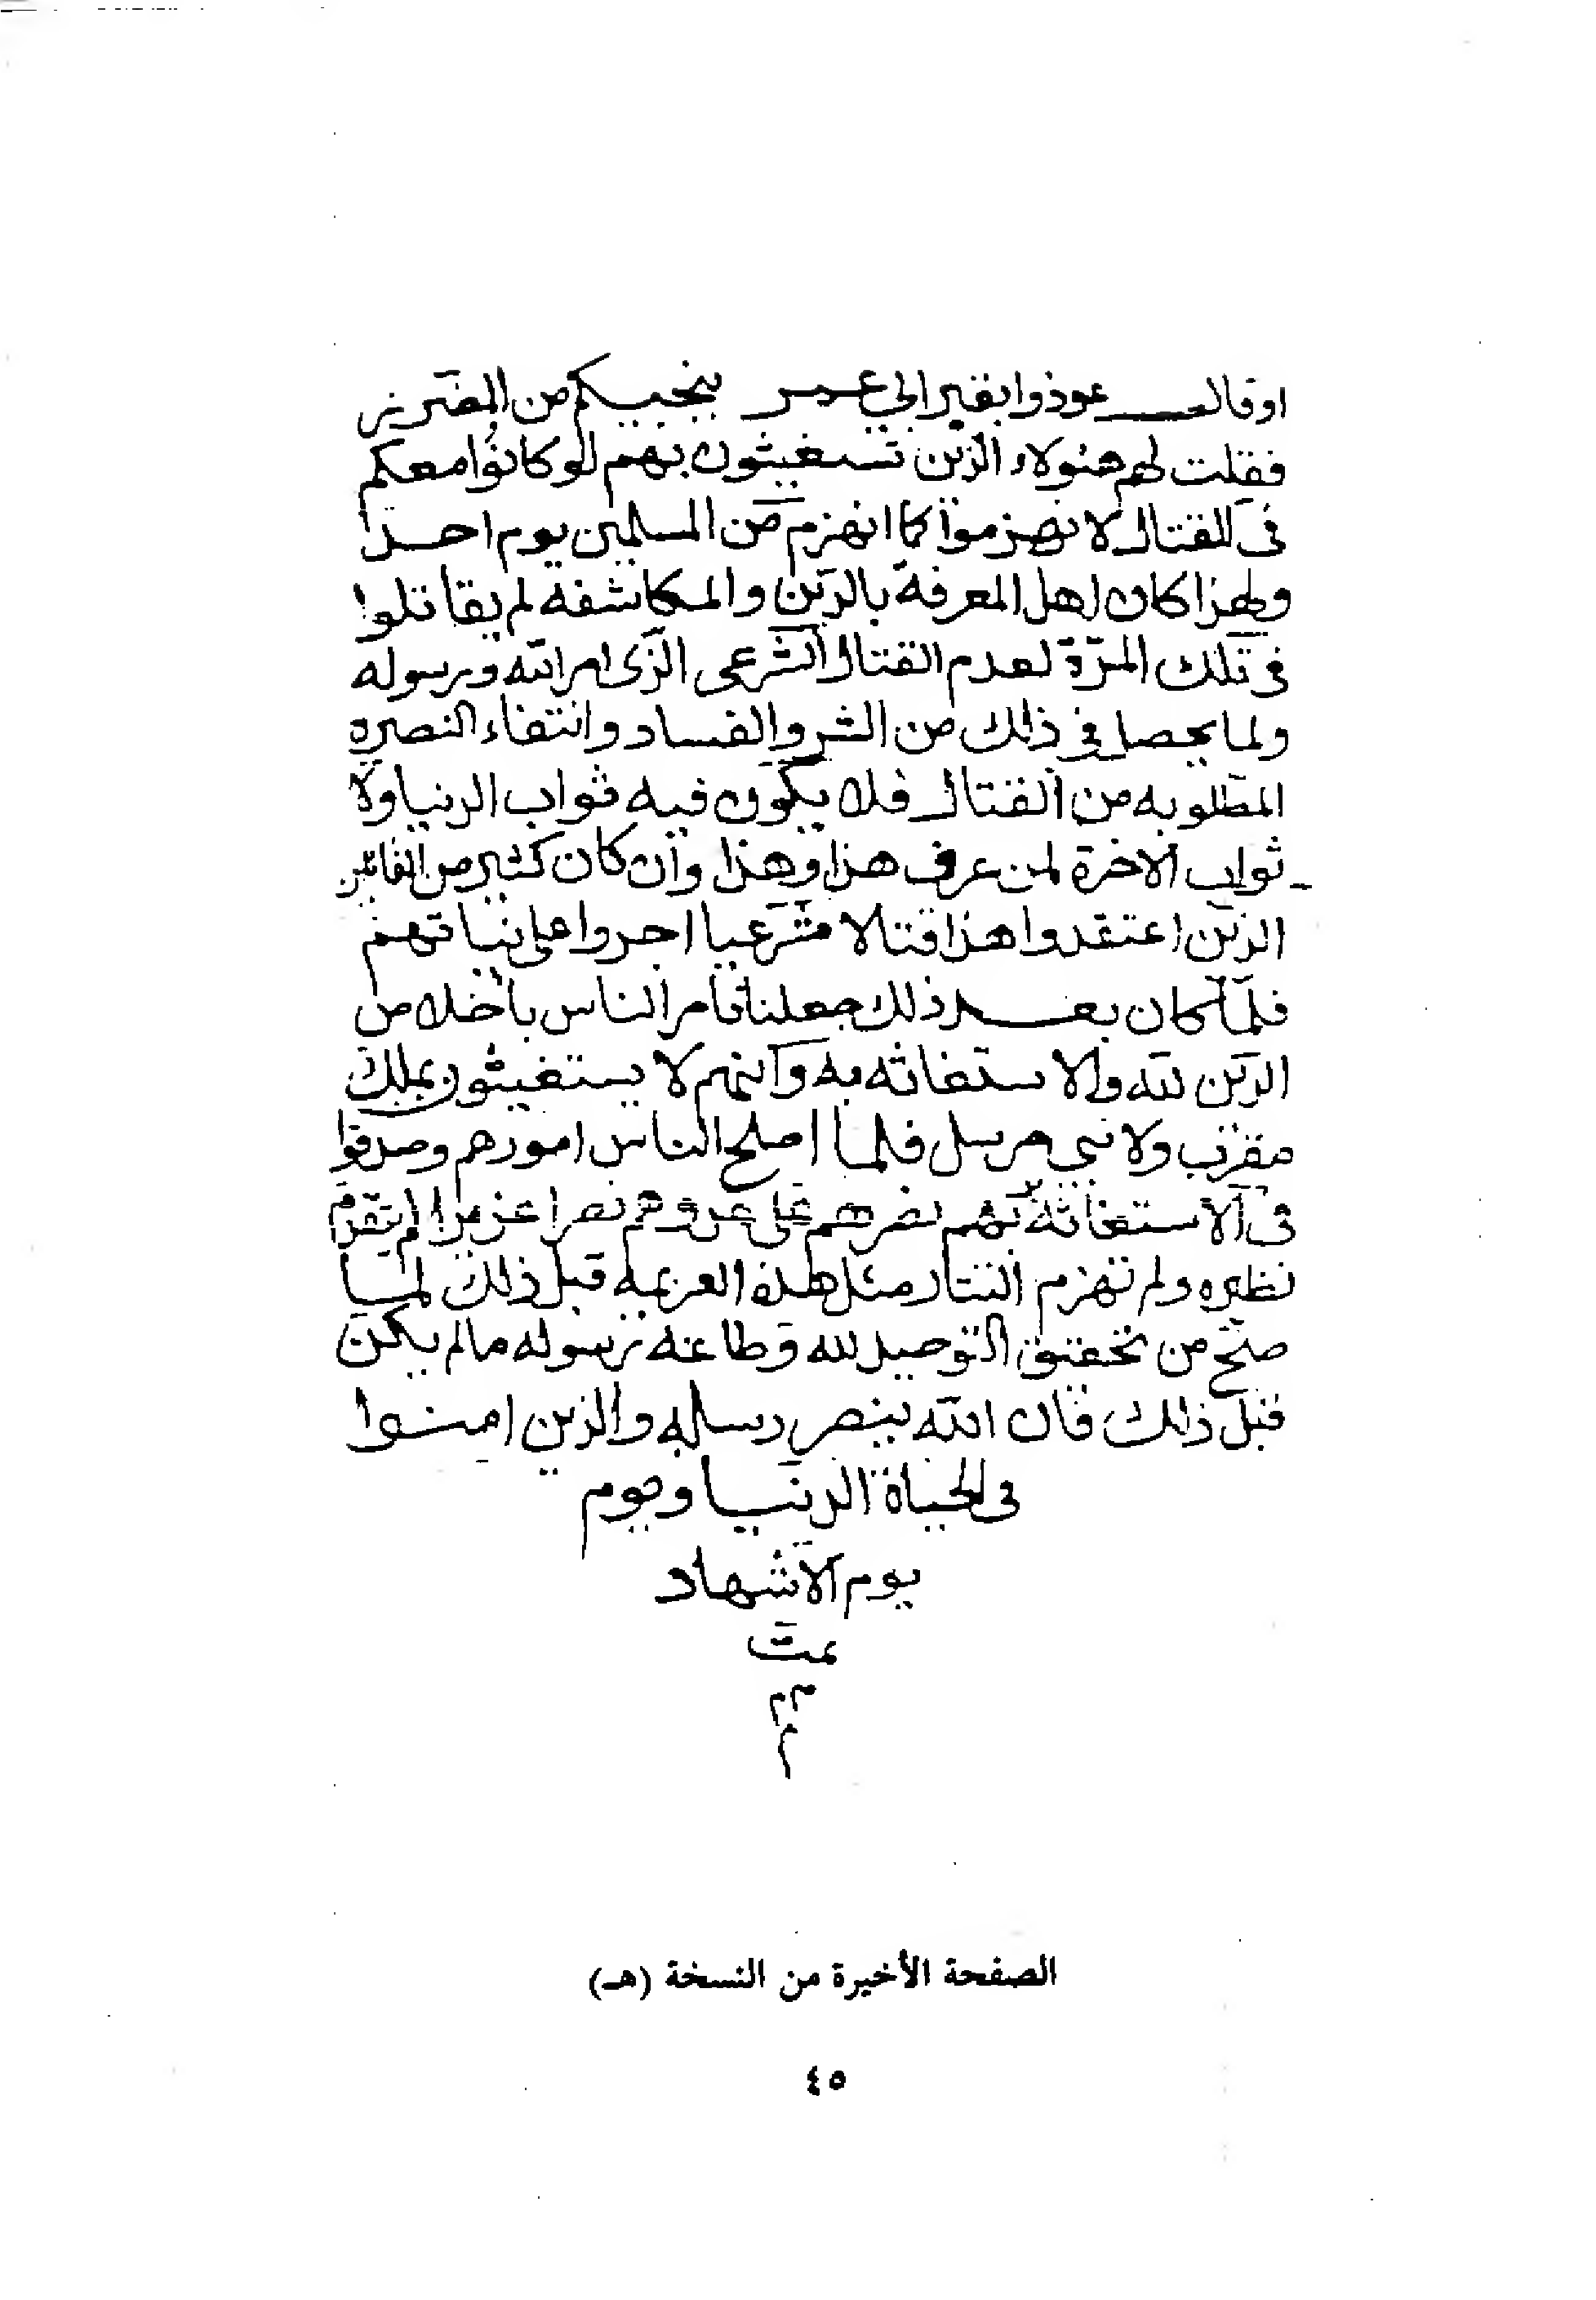 او قال عوذوا بقبر ابي عمر ينجيكم من الضرر
فقلت لهم هئولاء الذين تستغيثون بهم لو كانوا معكم
في القتال لانهزموا كما انهزم من المسلمين يوم احد
ولهذا كان اهل المعرفة بالدين والمكاشفه لم يقاتلوا
في تلك المرّة لعدم القتال الشرعي الذي امر الله ورسوله
ولما يحصل في ذلك من الشر والفساد وانتفاء النصره
المطلوبه من القتال فلا يكون فيه ثواب الدنيا ولا
ثواب الاخرة لمن عرف هذا وهذا وان كان كثير من القاتلين
الذين اعتقدوا هذا قتالا شرعيا اجروا على نياتهم
فلما كان بعد ذلك جعلنا نامر الناس باخلاص
الدين لله والاستغاثه به وانهم لا يستغيثون بملك
مقرب ولا نبي مرسل فلما اصلح الناس امورهم وصدقوا
في الاستغاثة بربهم نصرهم على عدوهم نصرا عزيزا لم يتقدم
نظيره ولم تهزم التتار مثل هذه العزيمه قبل ذلك لما
صح من تحقيق التوحيد لله وطاعة رسوله مالم يكن
قبل ذلك فان الله ينصر رسله والذين امنوا
في الحياة الدنيا ويوم
يوم الاشهاد
تمت
م م
م
الصفحة الأخيرة من النسخة (هـ)
٤٥